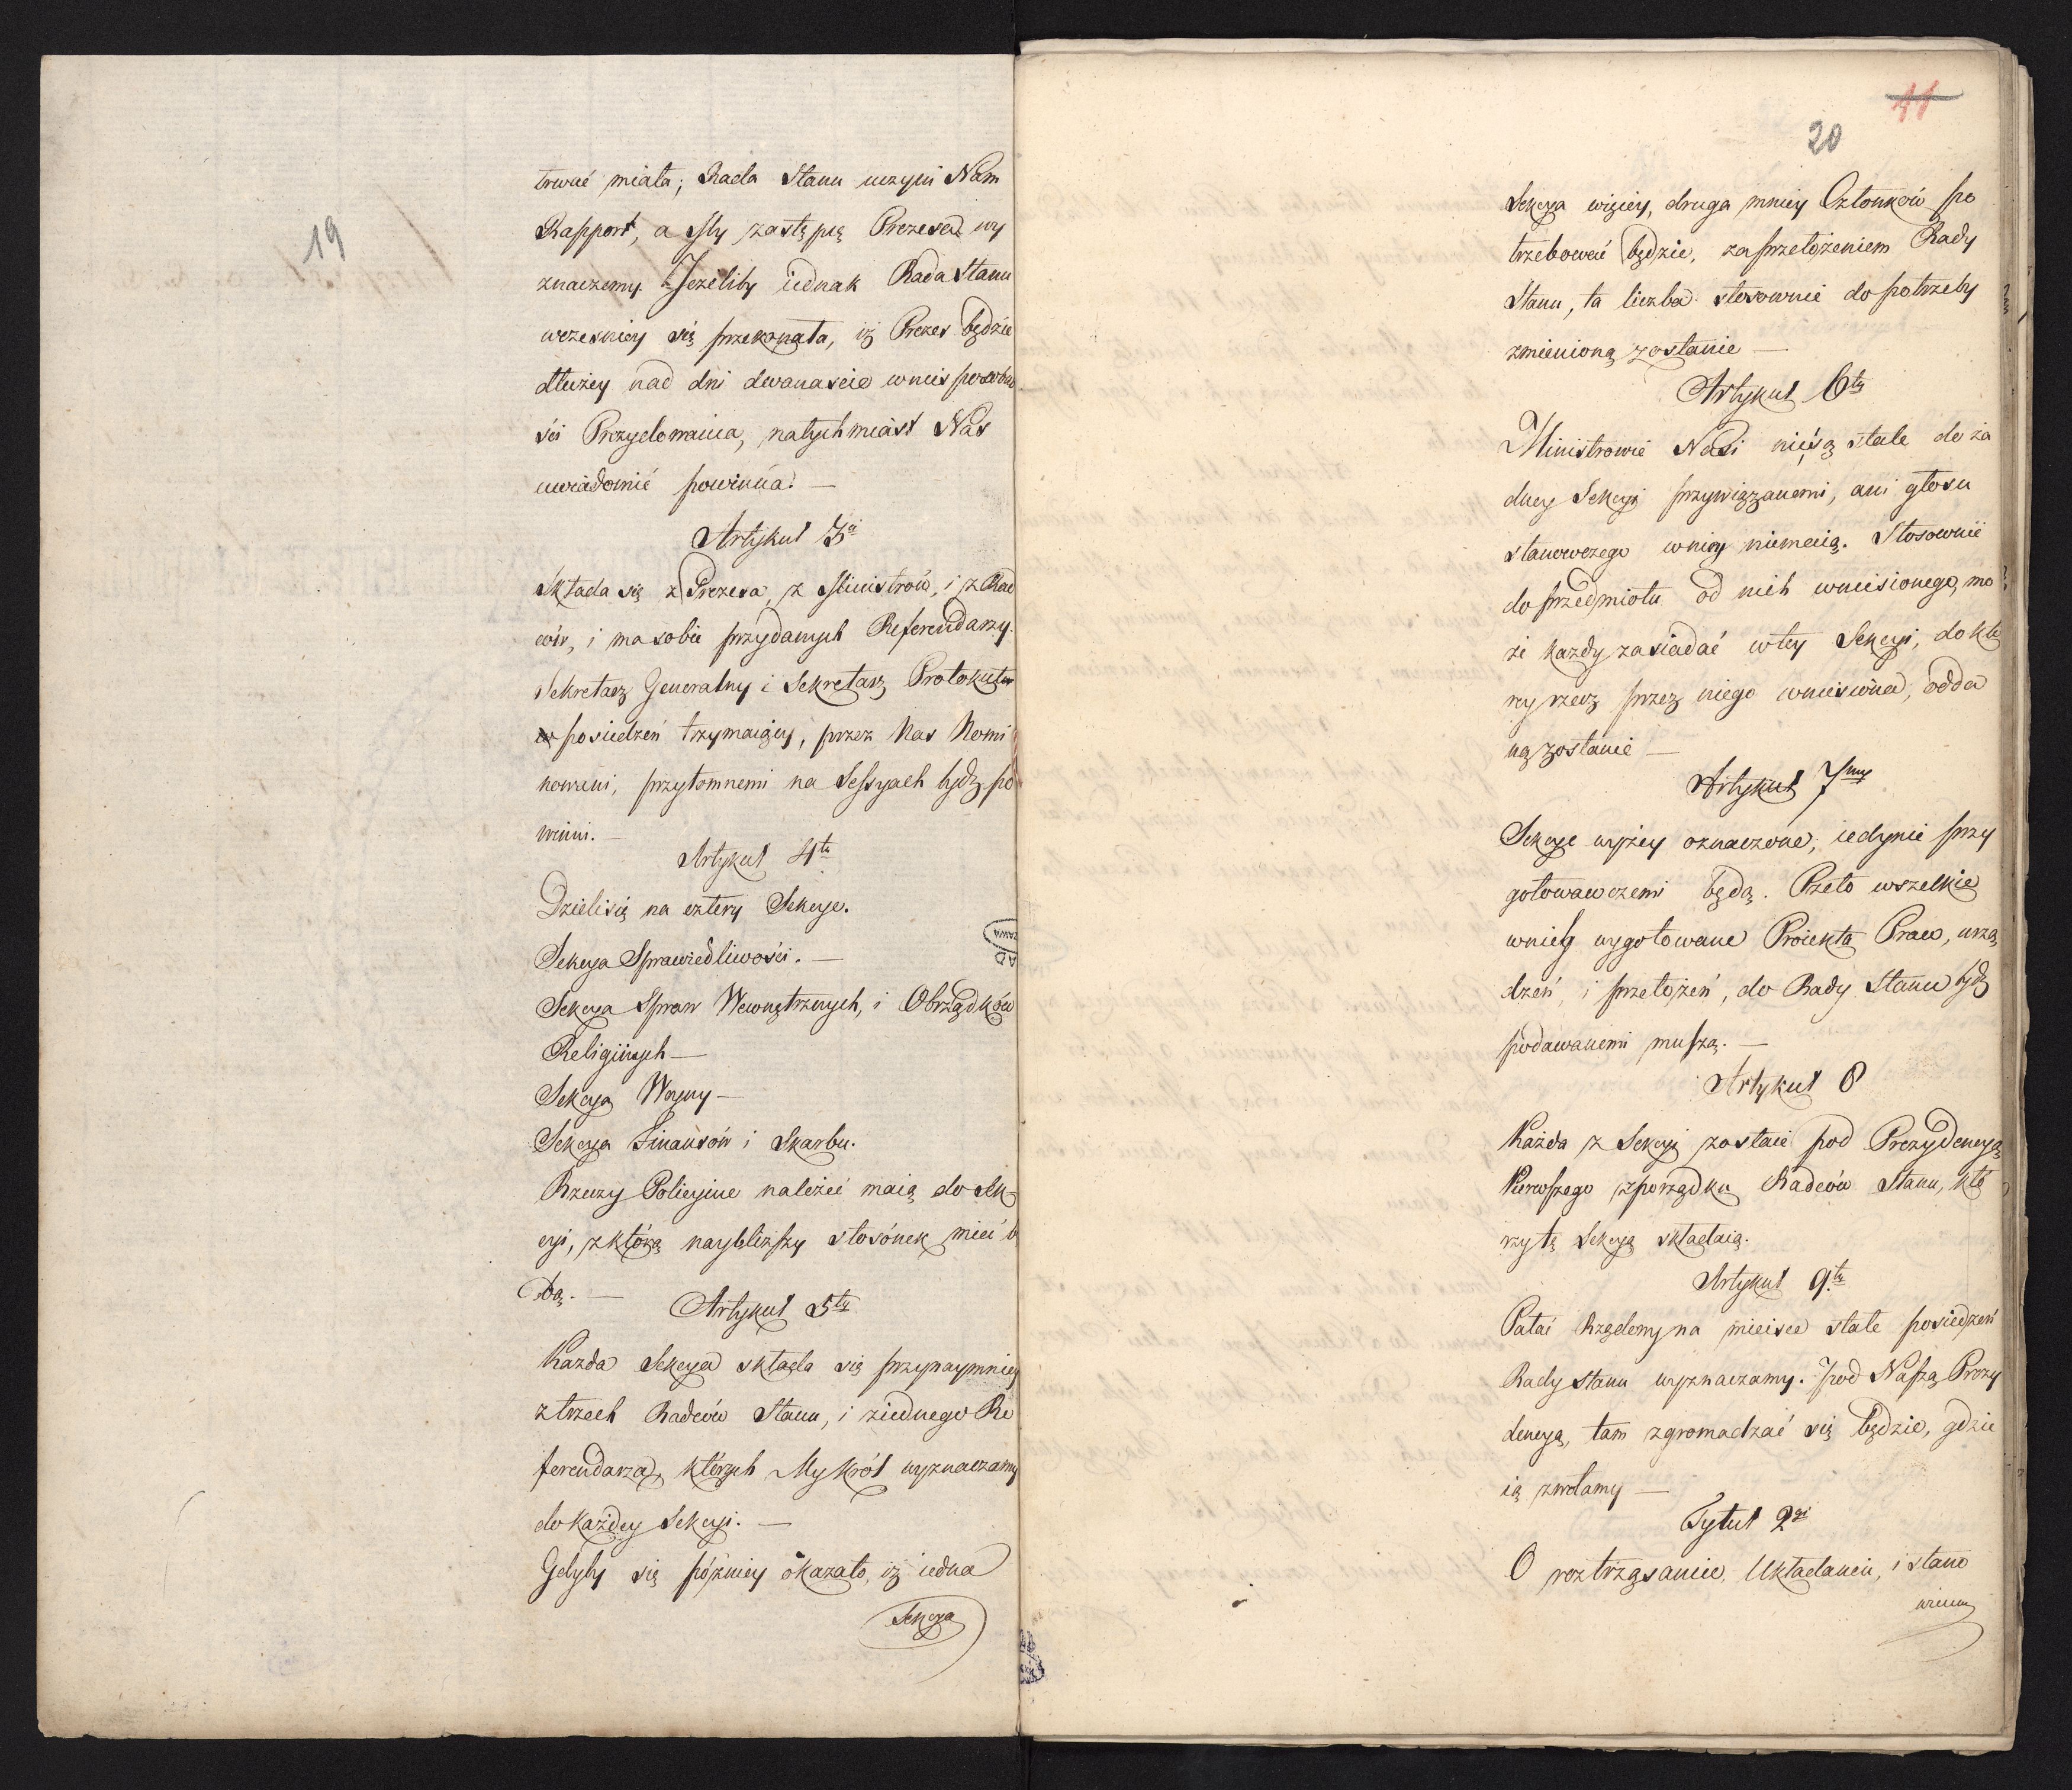 19
trwać miała; Rada Stanu uczyni Nam
Rapport, a My zastępcę Prezesa wy
znaczemy. Jeżeliby iednak Rada Stanu
wcześniey się przekonała, iż Prezes będzie
dłużey nad dni dwanaście w nie sposobno
ści Prezydowania, natychmiast Nas
uwiadomić powinna. —
Artykuł 3ci
Składa się z Prezesa, z Ministrów, i z Rad
ców, i ma sobie przydanych Referendarzy.
Sekretarz Generalny i Sekretarz Protokułu
posiedzeń trzymaiący, przez Nas Nomi
nowani, przytomnemi na Sessyach bydź po
winni. —
Artykuł 4ty
Dzieli się na cztery Sekcye.
Sekcya Sprawiedliwości. —
Sekcya Spraw Wewnętrznych, i Obrządków
Religiinych —
Sekcya Woyny —
Sekcya Finansów i Skarbu.
Rzeczy Policyine należeć maią do Sek
cyi, z którą naybliższy stosónek mieć b
dą. —
Artykuł 5ty
Każda Sekcya składa się przynaymniey
z trzech Radców Stanu, i z iednego Re
ferendarza, których My Król wyznaczamy
do każdey Sekcyi. —
Gdyby się późniey okazało, iż iedna
Sekcya
11
20
Sekcya więcey, druga mniey Członków po
trzebować będzie, za przełożeniem Rady
Stanu, ta liczba stosownie do potrzeby
zmienioną zostanie —
Artykuł 6ty
Ministrowie Nasi nie są stale do ża
dney Sekcyi przywiązanemi, ani głosu
stanowczego w niey nie maią. Stosownie
do przedmiotu od nich wniesionego, mo
że każdy zasiadać w tey Sekcyi, do któ
rey rzecz przez niego wniesiona, odda
ną zostanie —
Artykuł 7my
Sekcye wyżey oznaczone, iedynie przy
gotowawczemi będą. Przeto wszelkie
w nich wygotowane Proiekta Praw, urzą
dzeń i przełożeń, do Rady Stanu bydź
podawanemi muszą. —
Artykuł 8
Każda z Sekcyi zostaie pod Prezydencyą
Pierwszego z porządku Radców Stanu, któ
rzy tę Sekcyą składaią.
Artykuł 9ty
Pałac Rządowy na mieisce stałe posiedzeń
Rady Stanu wyznaczamy. Pod Naszą Prezy
dencyą, tam zgromadzać się będzie, gdzie
ią zwołamy —
Tytuł 2gi
O roztrząsaniu, Układaniu, i stano
wieniu